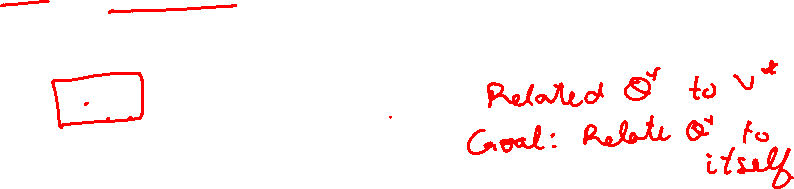 Related Q* to V*
Goal: Relate Q* to
itself